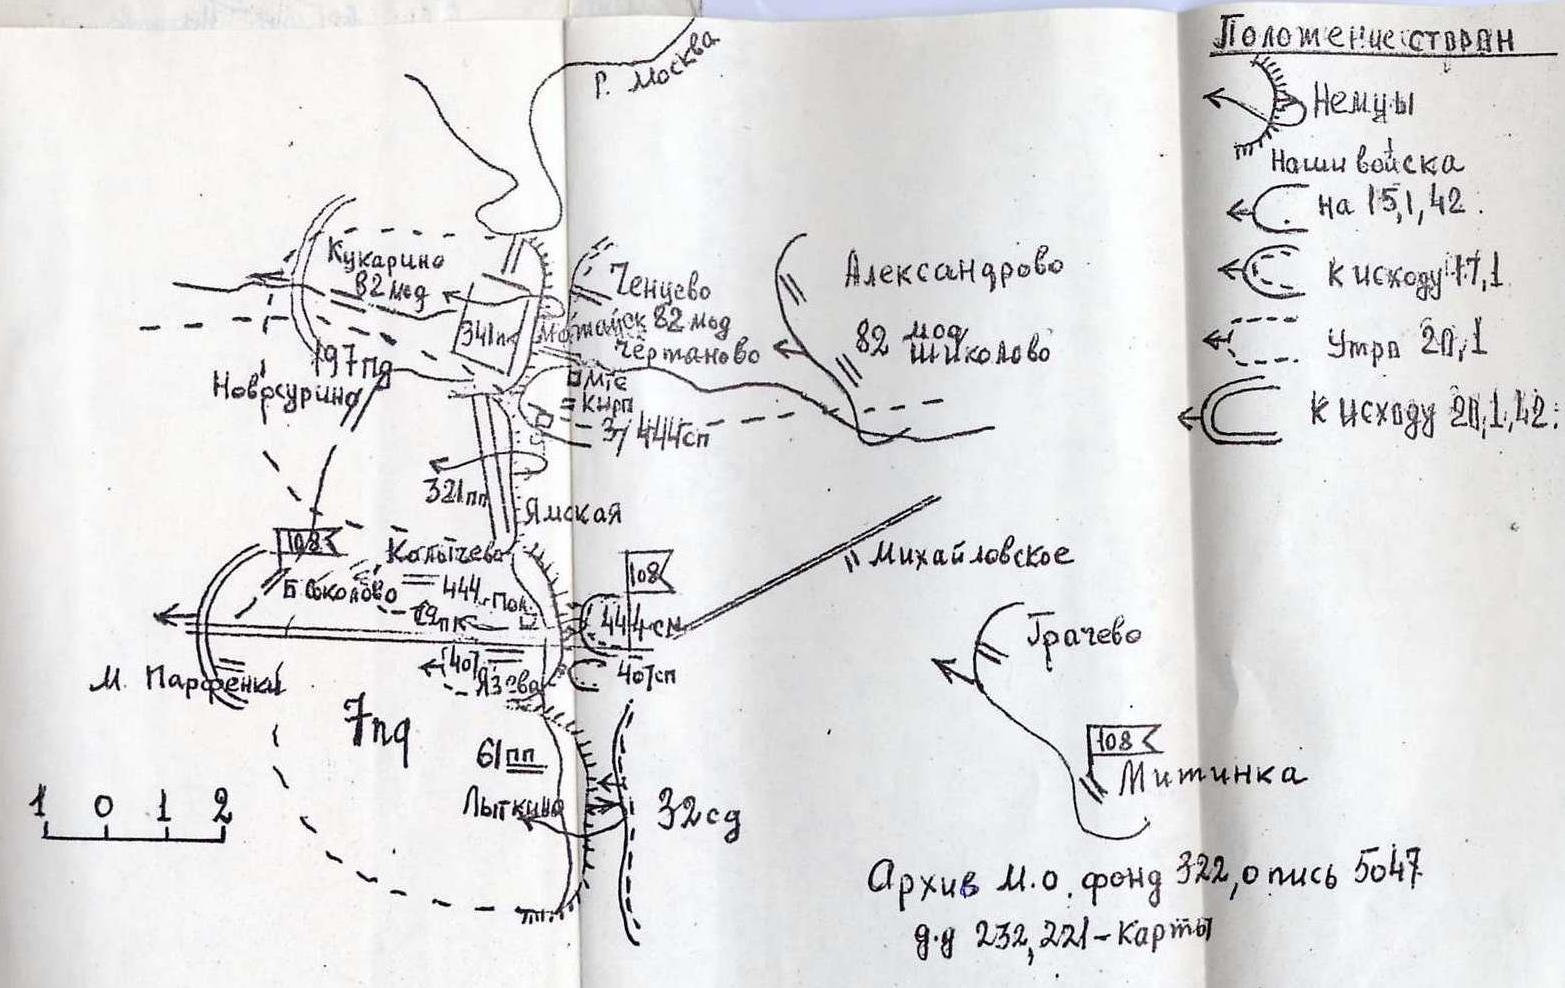 Положение сторан
Р. Москва
Немцы
Наши войска
на 15,1,42.
К исходу 17,1
Утрп 20,1
К исходу 20,1,42.
Кукарино
82 мсд
341пп
Ченцево
Можайск 82 мсд
Чертаново
Александрово
82 мсд
Шиколово
197пд
Новосурино
МТС
Кирп
3/444сп
321пп
Ямская
108
Колычево
Бсоколово
444
108
444сп
Михайловское
407
Язево
407сп
М. Парфенки
7пд
61пп
Лыткино
32сд
Грачево
108
Митинка
1 0 1 2
Архив М.О. фонд 322, опись 5047
д.д 232,221-карты